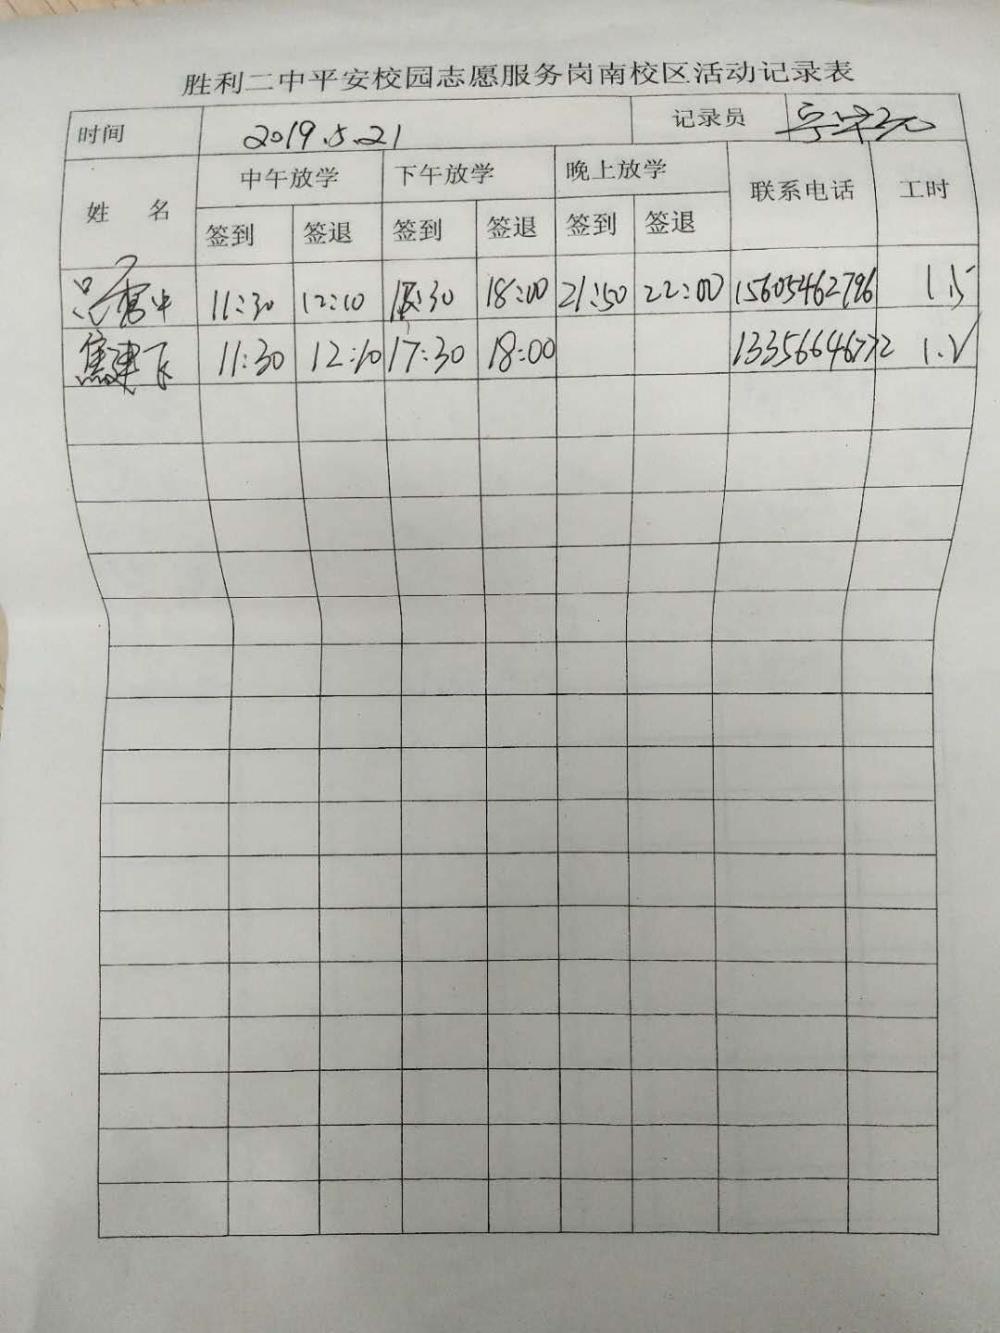 胜利二中平安校园志愿服务岗南校区活动记录表
时间 2019.5.21 记录员
姓 名 中午放学 下午放学 晚上放学 联系电话 工时
签到 签退 签到 签退 签到 签退
11:30 12:10 17:30 18:00 21:50 22:00 15605462796 1.5
焦建飞 11:30 12:10 17:30 18:00 13356646772